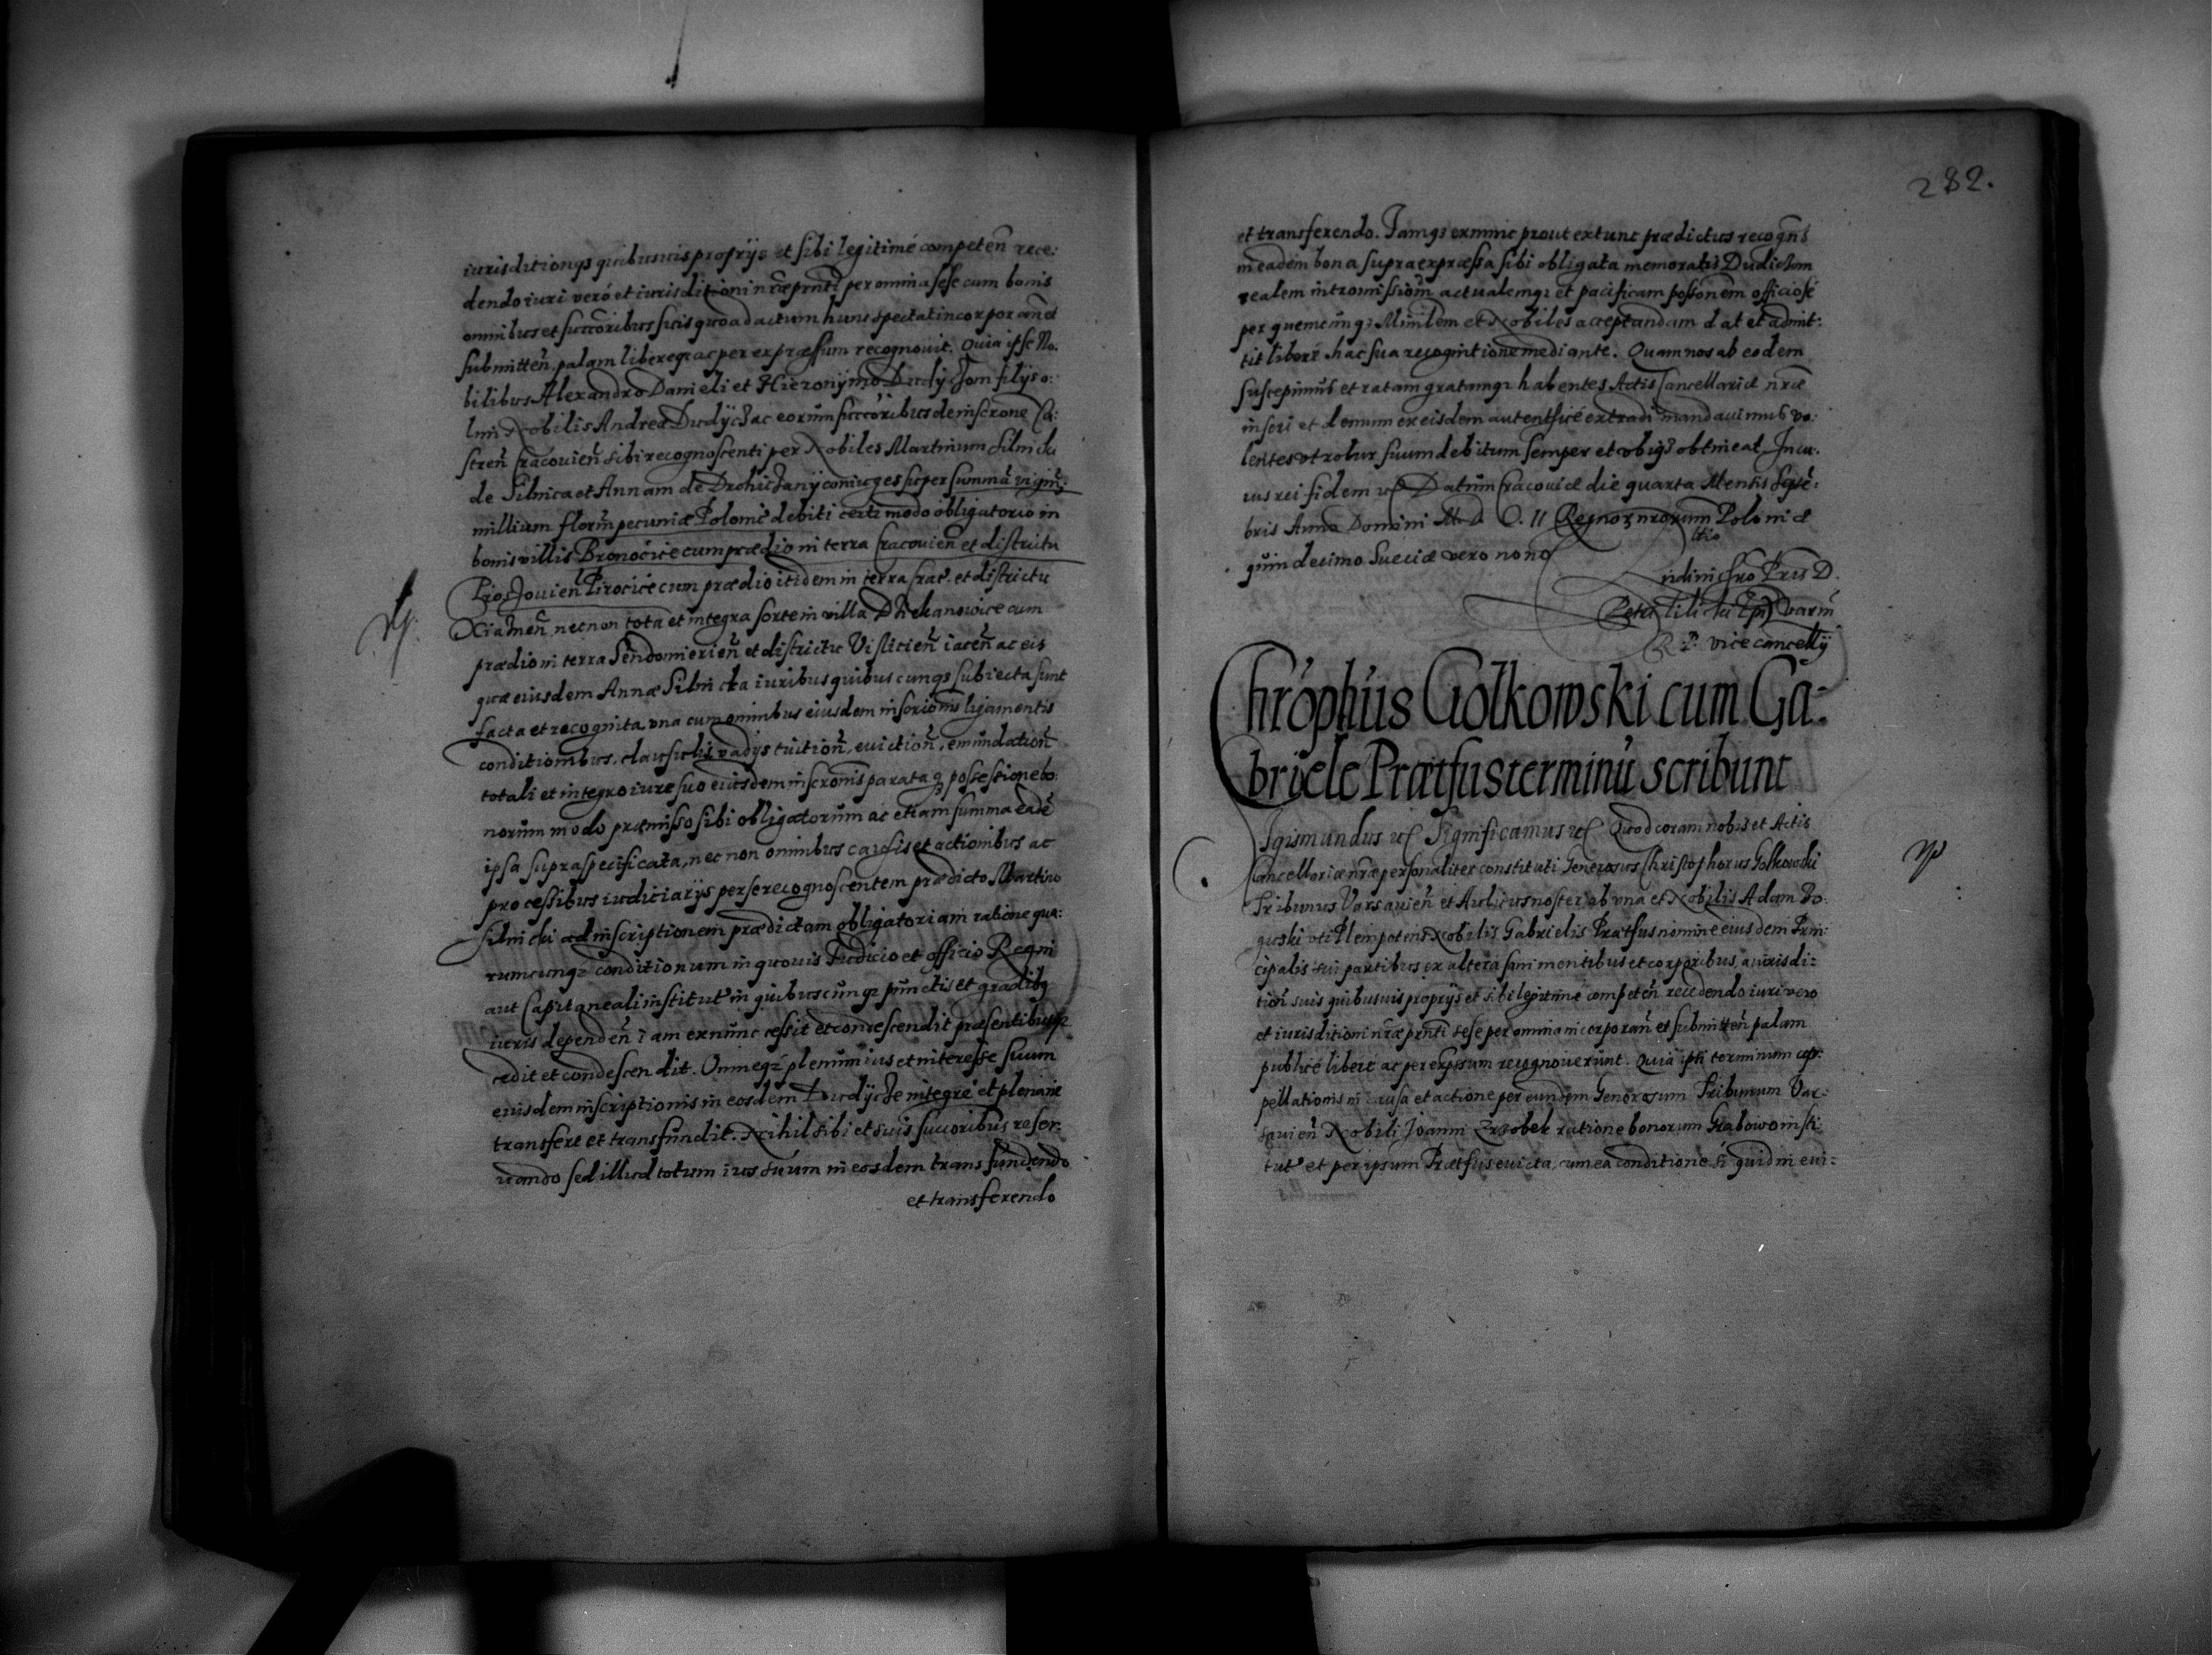 iurisditiongs quibusuis proprijs et sibi legitimé competeñ rece:
dendo iuri veró et iurisditioni nr̃æ prn̄ti per omnia sese cum bonis
omnibus et succoribus suis quo ad actum hunc spectat incorporañ et
submitteñ. palam libereqz ac per expræssum recognouit. Quia ipse No.
bilibus Alexandro Danieli et Hieronÿmo Dudÿcz om filÿs o:
lim Nobilis Andreæ Dudÿcz ac eorum succoribus de inscrone Ca:
streñ Cracouieñ sibi recognoscenti per Nobiles Martinum Silnicki
de Silnica et Annam de Drohiczany coniuges super summã vigin̄:
millium florm̃ pecuniæ Poloniĉ debiti certi modo obligatorio in
bonis villis Bronocice cum prædio in terra Cracouieñ et districtu
Proszouieñ Pirocice cum prædio itidem in terra Crac. et districtu
Xiazneñ, nec non tota et integra sorte in villa Dzhekanowice cum
prædio in terra Sendomierieñ et districtu Visliciẽn iaceñ ac eis
quæ eiusdem Annæ Silnicka iuribus quibuscungs subiecta sunt
facta et recognita vna cum omnibus eiusdem inscriõnis ligamentis
conditionibus, clausulis vadijs tuitioñ, euictioñ, emundatioñ
totali et integro iure suo eiusdem inscronis parataqz possessione bo:
norum modo præmisso sibi obligatorum ac etiam summa eadẽ
ipsa supraspecificata, nec non omnibus causis et actionibus ac
processibus iudiciarÿs per se recognoscentem prædicto Martino
Silnicki ad inscriptionem prædictam obligatoriam ratione qua:
rumcunqz conditionum in quouis Iudicio et officio Regni
aut Capitaneali institut in quibuscunqz punctis et gradibz
iuris dependeñ iam exnunc cessit et concescendit præsentibusqz
cedit et condescendit. Omneqz plenum ius et interesse suum
eiusdem inscriptionis in eosdem Dudÿcze integré et plenarie
transfert et transfundit. Nihil sibi et suis succoribus reser:
uando sed illud totum ius suum in eosdem transfundendo
et transferendo
282.
et transferendo. Iamqz exnunc prout extunc prædictus recogns̃
in eadem bona supraexpræssa sibi obligata memoratis Dudiczom
realem intromissiom̃ actualemqz et pacificam possonem officiose
per quemcunqz Minl̃em et Nobiles acceptandam dat et admit:
tit liberé hac sua recognitione mediante. Quam nos ab eodem
suscepimus et ratam gratamqz habentes Actis Cancellariæ nr̃æ
inseri et demum ex eisdem autenthicé extradi mandauimus vo:
lentes vt robur suum debitum semper et vbiqz obtineat. In cu.
ius rei fidem etc̃ Datum Cracouiæ die quarta Mensis Septẽ:
bris Anno Domini M. D. C. II Regnorz nrorum Poloniæ
quindecimo Sueciæ vero nono
Petri Tilicki Epi Varm̃
R. P. vicecancellÿ
Chrophüs Gołkowski cum Ga:
briele Prætfus terminũ scribunt
Sigismundus etc̃ Significamus etc̃ Quod coram nobis et Actis
Cancellariæ nr̃æ personaliter constituti Generosus Christophorus Golkowski
Tribunus Varsauieñ et Aulicus noster ab vna et Nobilis Adam Ro:
guski vti Plenipotens Nobilis Gabrielis Prætfus nomine eiusdem Prin:
cipalis sui partibus ex altera sani mentibus et corporibus, a iurisdi:
tioñ suis quibusuis proprijs et sibi legitimé competeñ recedendo iuri vero
et iurisditioni nr̃æ prn̄ti sese per omnia incorporañ et submitteñ palam
publicé libere ac per expssum recognouerunt. Quia ipsi terminum ap:
pellationis in causa et actione per eundem Generosum Tribunum Var:
sauieñ Nobili Joanni Zrzobek ratione bonorum Grabowo insti:
tut et per ipsum Prætfus euicta, cum ea conditione si quid in eui: